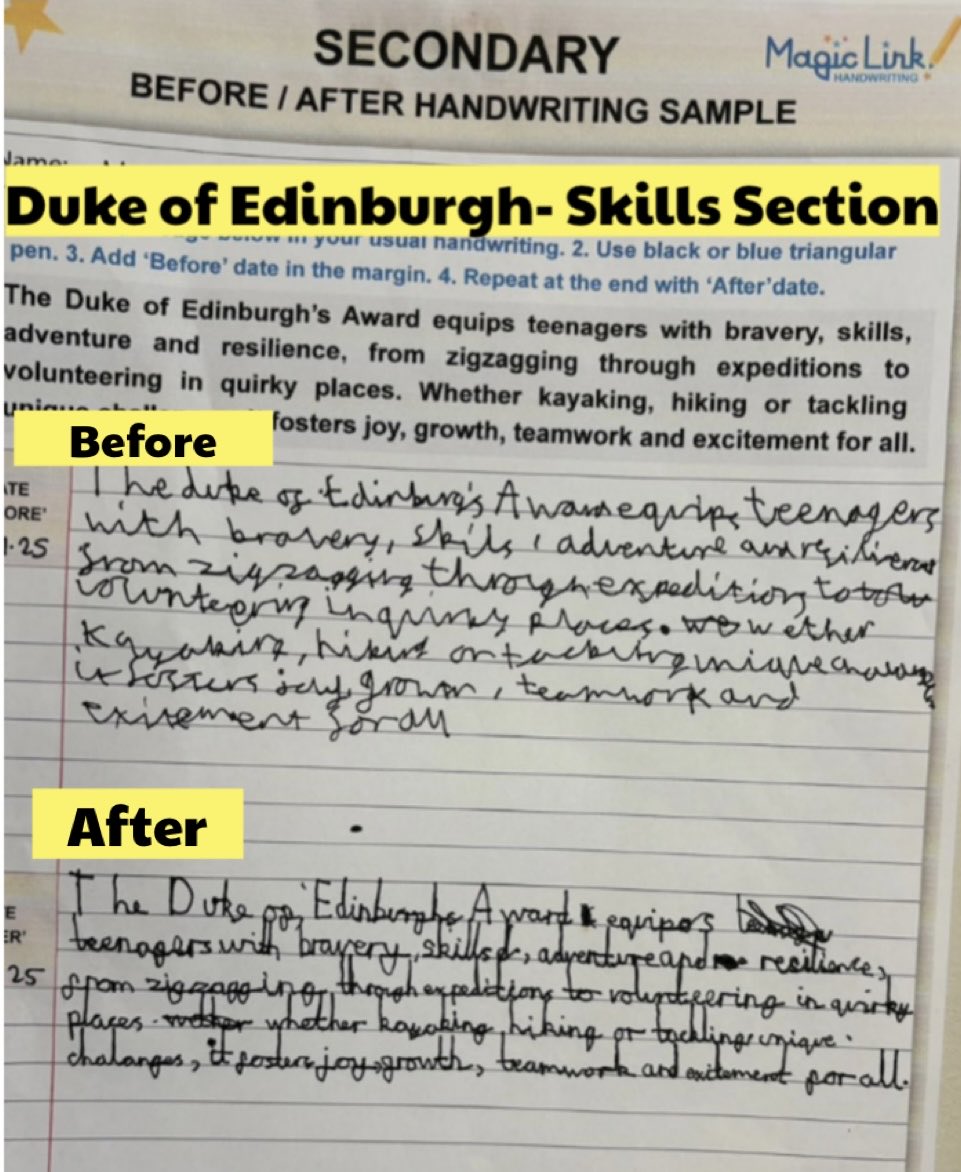 SECONDARY
Magic Link
HANDWRITING
BEFORE / AFTER HANDWRITING SAMPLE
Name:
Duke of Edinburgh- Skills Section
in your usual handwriting. 2. Use black or blue triangular
pen. 3. Add ‘Before’ date in the margin. 4. Repeat at the end with ‘After’date.
The Duke of Edinburgh’s Award equips teenagers with bravery, skills,
adventure and resilience, from zigzagging through expeditions to
volunteering in quirky places. Whether kayaking, hiking or tackling
unique fosters joy, growth, teamwork and excitement for all.
Before
ATE
ORE’
1.25
The duke of Edinburg's Award equips teenagers
with bravery, skils, adventure
from zigzagging through expeditions to
volunteering in quirky places. wether
Kayaking, hiking or tackling unique
it fosters joy, grown, teamwork and
exitement for all
After
E
ER’
25
The Duke of Edinburghs Award equipos
teenagers with bravery, skills, adventure and recilience,
from zigzagging, through expeditions to volunteering in quirky
places. whether kayaking, hiking or tackling unique
chalanges, it fosters joy, growth, teamwork and excitement for all.